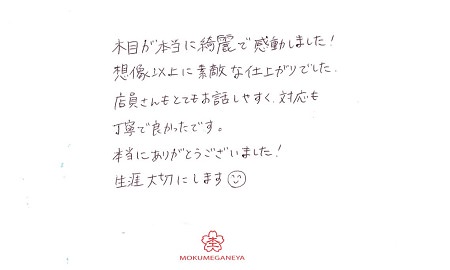 木目が本当に綺麗で感動しました！
想像以上に素敵な仕上がりでした.
店員さんもとてもお話しやすく、対応も
丁寧で良かったです。
本当にありがとうございました！
生涯大切にします☺
MOKUMEGANEYA